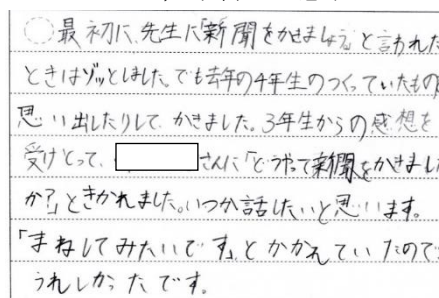 ○最初に、先生に「新聞をかきましょう」と言われた
ときはゾッとしました。でも去年の4年生のつくっていたもの
思い出したりして、かきました。3年生からの感想を
受けとって、さんに「どうやって新聞をかきまし
か?」ときかれました。いつか話したいと思います。
「まねしてみたいです」とかかれていたので
うれしかったです。